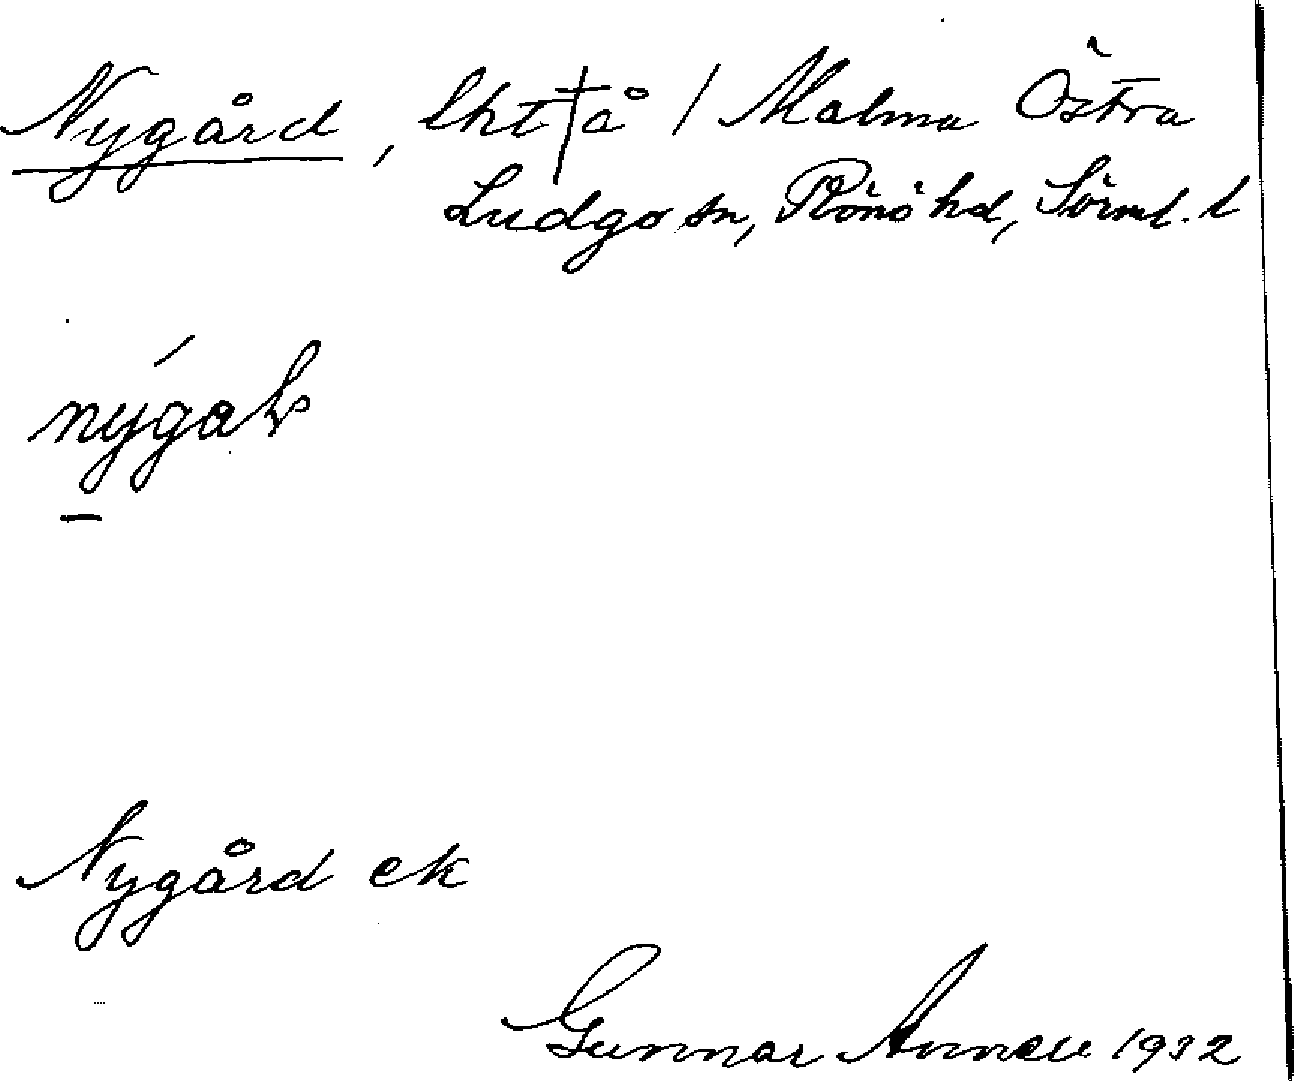 Nygård, lht † å / Malma Östra
Ludgo sn, Rönö hd, Sörml. l
Nygård ek
Gunnar 1932